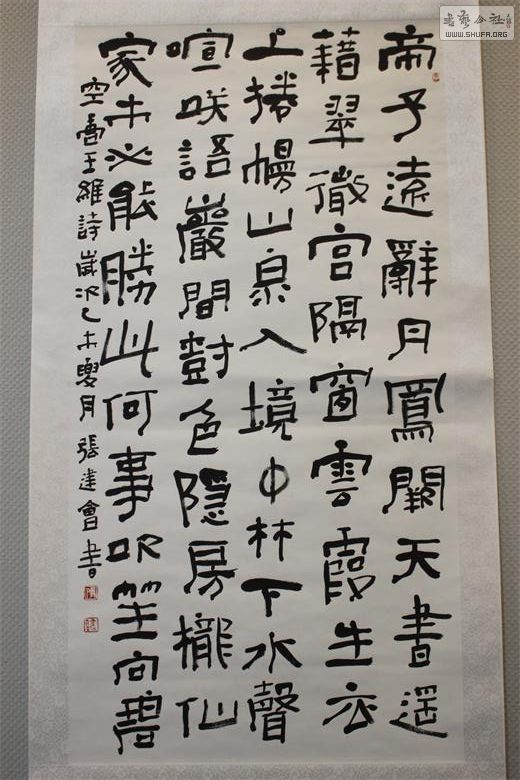 帝子遠辭月鳳闕天書遥
藉翠微宫隔窗雲霞生衣
上捲幔山泉入境中林下水聲
喧咲語巖間對色隱房櫳仙
家未必能勝此何事吹笙向碧
空 唐王維詩歲次乙未夏月張建會書
書藝公社
WWW.SHUFA.ORG